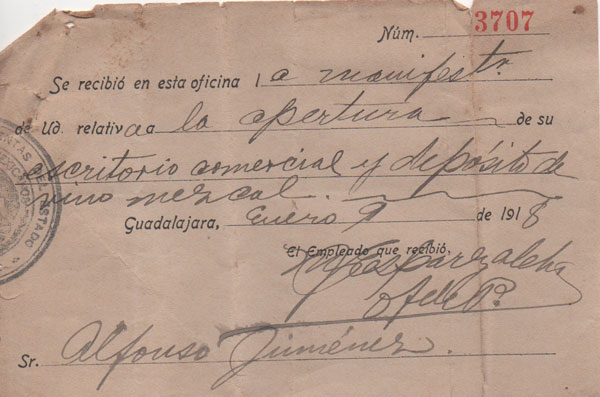 Núm. 3707
Se recibió en esta oficina la manifestn.
de Ud. relativa a la apertura de su
escritorio comercial y depósito de
vino mezcal.
Guadalajara, Enero 9 de 1918
El Empleado que recibió,
Sr. Alfonso Jiménez.